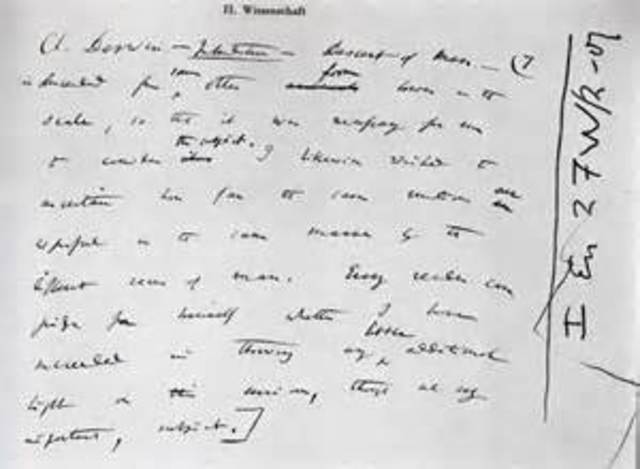 II. Wissenschaft
Darwin — Introduction — Descent of Man — (7
is descended from some other form lower in the
scale, so that it was necessary for me
to consider the subject. I likewise wished to
ascertain how far the same emotions are
expressed in the same manner by the
different races of man. Every reader can
judge for himself whether I have
succeeded in throwing any little additional
light on this curious,
important, subject.]